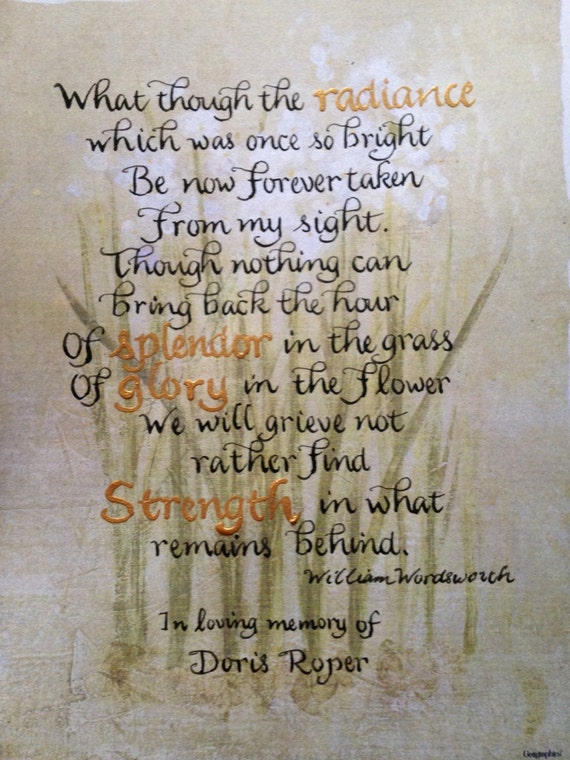 What though the radiance
which was once so bright
Be now forever taken
From my sight.
Though nothing can
bring back the hour
Of splendor in the grass
Of glory in the flower
We will grieve not
rather find
Strength in what
remains behind.
William Wordsworth
In loving memory of
Doris Roper
Geographics